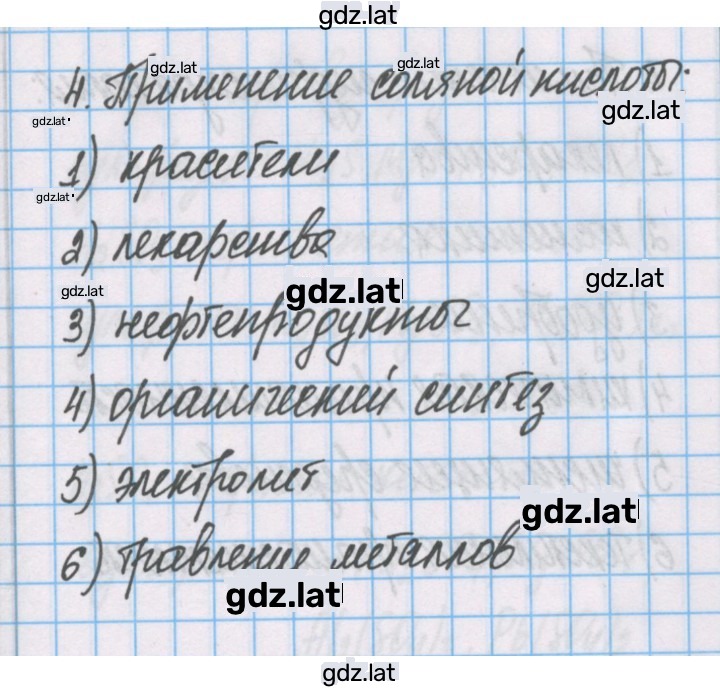 gdz.lat
gdz.lat
gdz.lat
4. Применение соляной кислоты.
gdz.lat
gdz.lat
1) красители
gdz.lat
2) лекарства
gdz.lat
gdz.lat
gdz.lat
3) нефтепродукты
4) органический синтез
5) электролит
gdz.lat
6) травление металлов
gdz.lat
gdz.lat